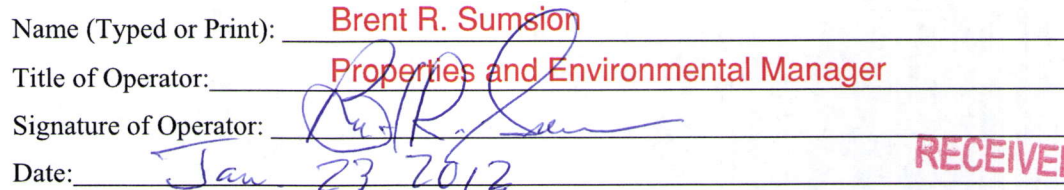 Name (Typed or Print): Brent R. Sumsion
Title of Operator: Properties and Environmental Manager
Signature of Operator: Brent R. Sum
Date: Jan. 23 2012
RECEIVE